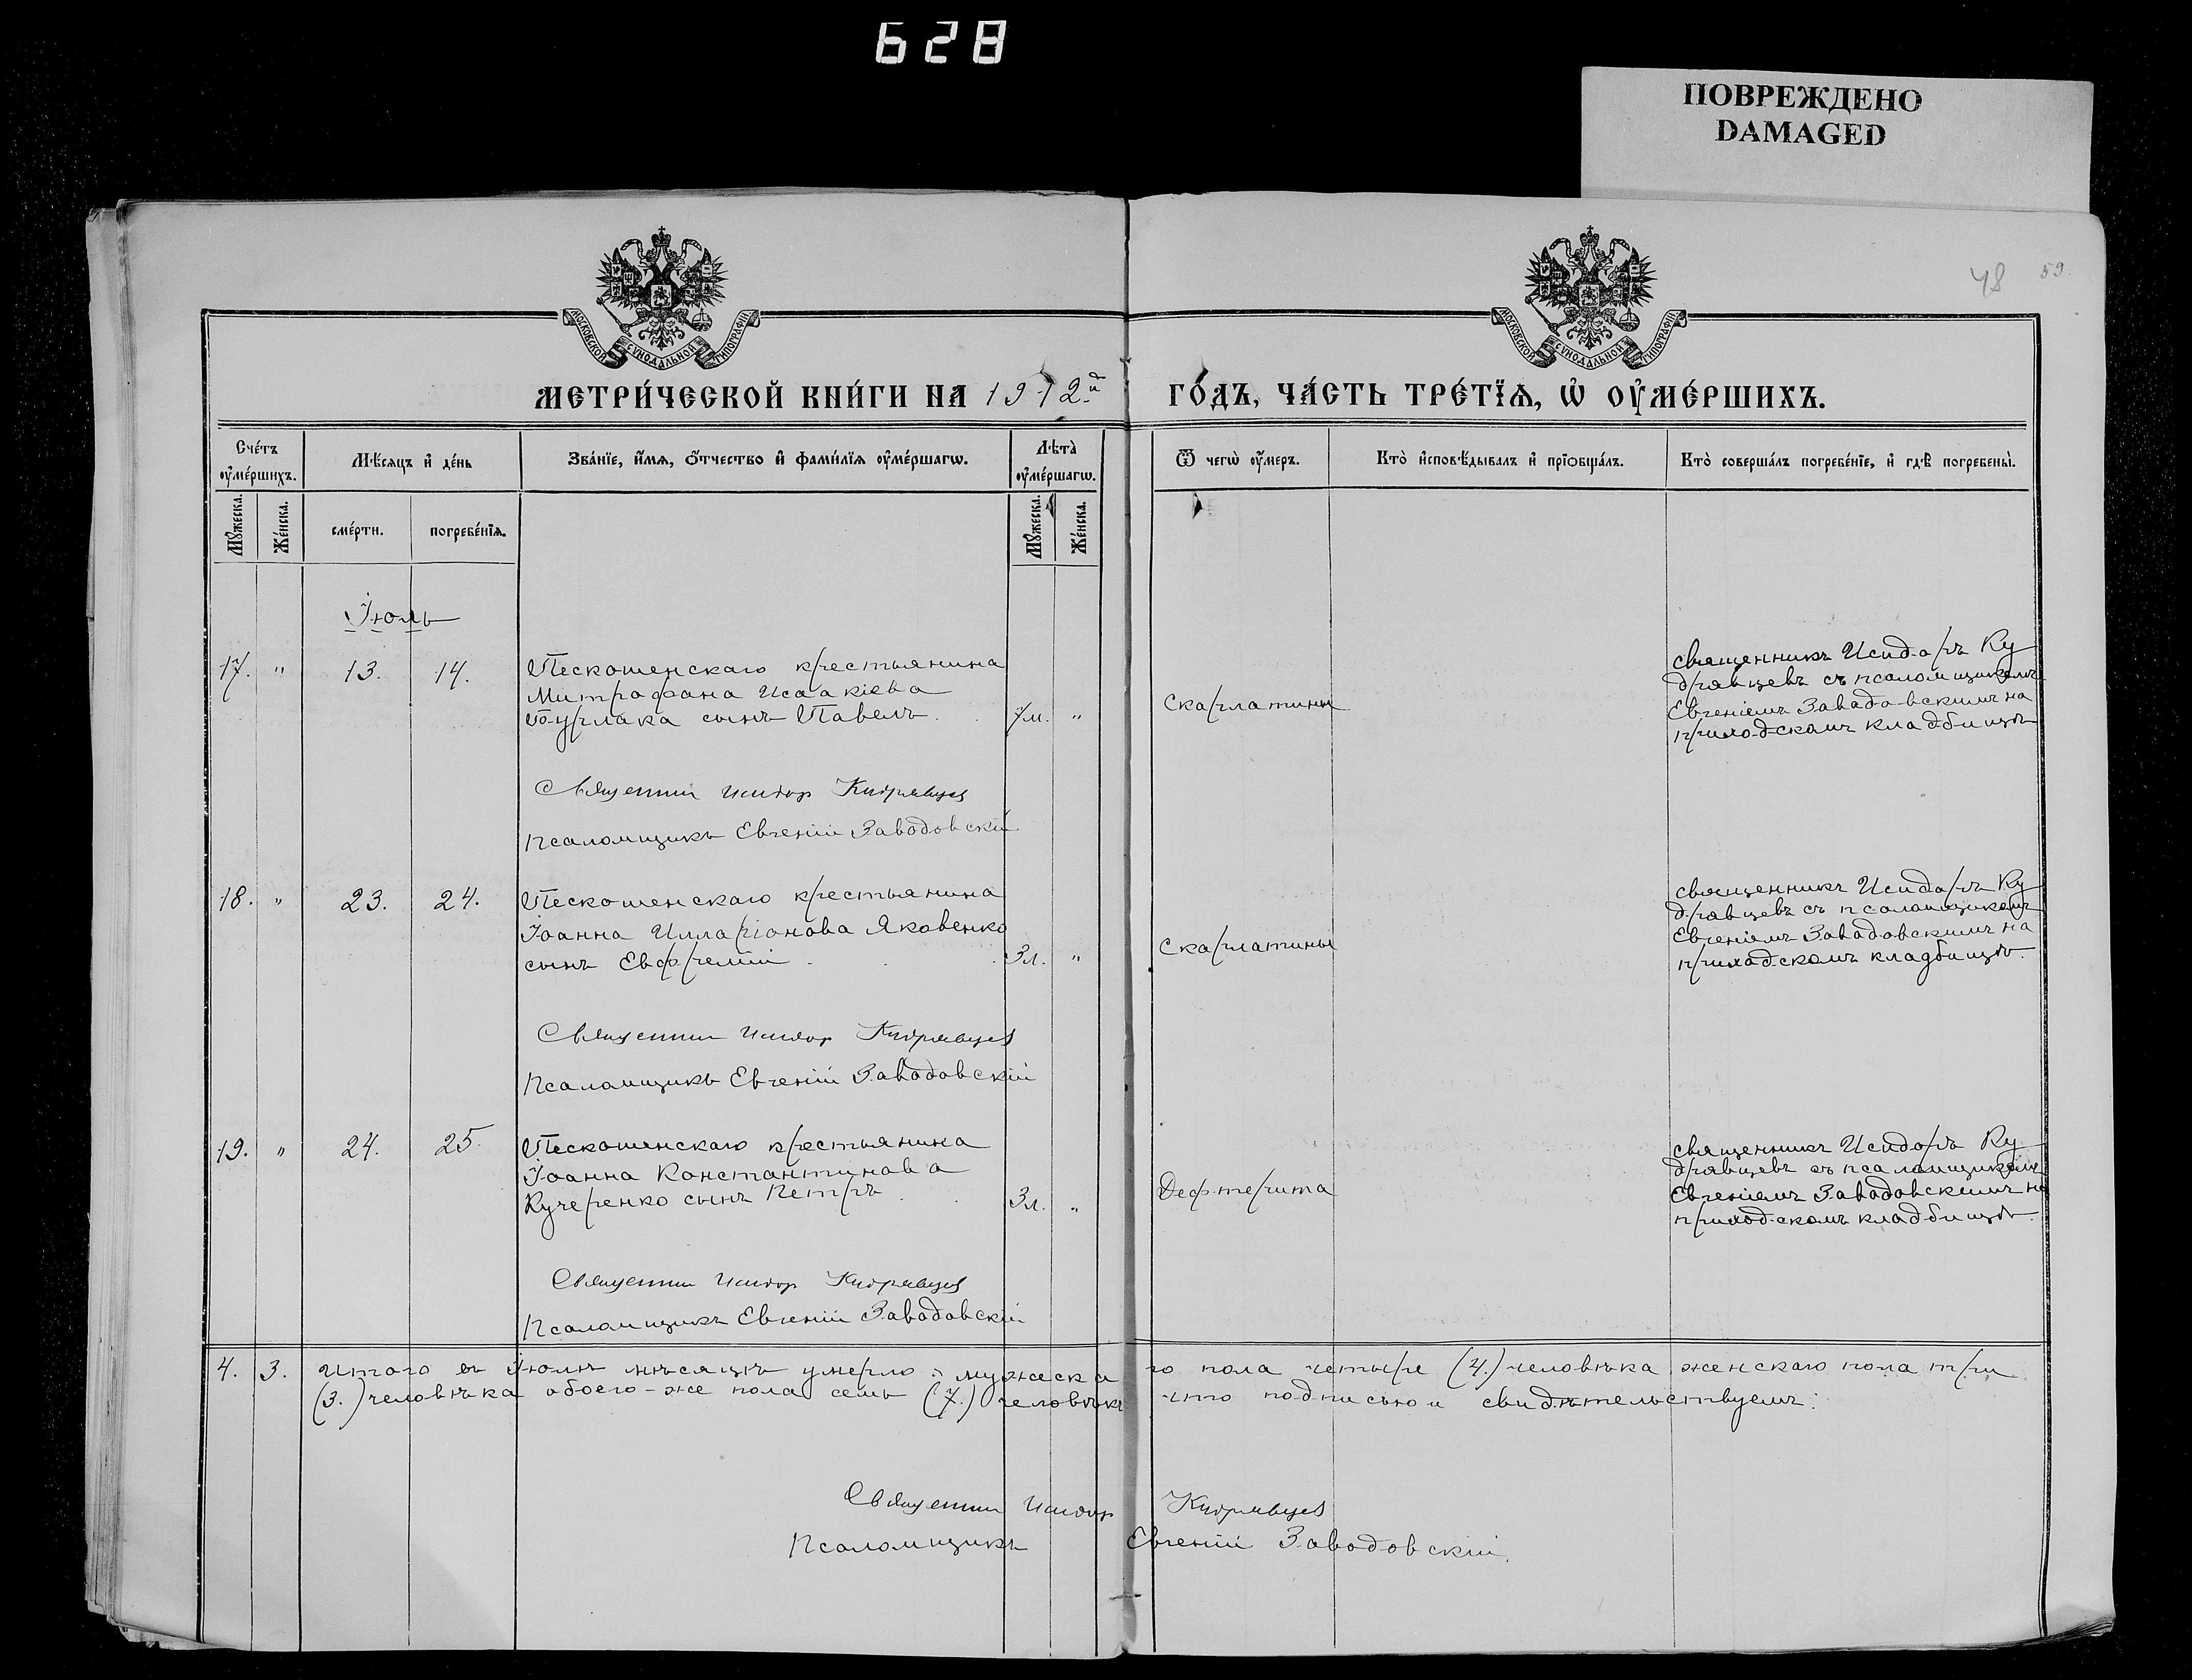 628
ПОВРЕЖДЕНО
DAMAGED
48 59.
МОСКОВСКОЙ СѴНОДАЛЬНОЙ ТИПОГРАФІИ
МОСКОВСКОЙ СѴНОДАЛЬНОЙ ТИПОГРАФІИ
МЕТРИ́ЧЕСКОЙ КНИ́ГИ НА 1912й ГО́ДЪ, ЧА́СТЬ ТРЕ́ТЇѦ, Ѡ҆ ОУ҆МЕ́РШИХЪ.
Сче́тъ оу҆ме́ршихъ.
Мѣ́сѧцъ и҆ де́нь
Зва́нїе, и҆́мѧ, ѻ҆́тчество и҆ фами́лїѧ оу҆ме́ршагѡ.
Лѣ̀та оу҆ме́ршагѡ.
Ѿ чегѡ̀ оу҆́меръ.
Кто̀ и҆сповѣ́дывалъ и҆ прїѡбща́лъ.
Кто̀ соверша́лъ погребе́нїе, и҆ гдѣ̀ погребены̀.
Мꙋ́жеска. Же́нска. сме́рти. погребе́нїѧ. Мꙋ́жеска. Же́нска.
Іюль
17. " 13. 14. Пескошенскаго крестьянина
Митрофана Исаакіева
Бурлака сынъ Павелъ. 7м. "
Скарлатины
священникъ Исидоръ Ку
дрявцевъ съ псаломщикомъ
Евгеніемъ Заводовскимъ на
приходскомъ кладбищѣ
Священник Исидор Кудрявцев
Псаломщикъ Евгеній Заводовскій
18. " 23. 24. Пескошенскаго крестьянина
Іоанна Илларіонова Яковенко
сынъ Евфремій . . . 3л. "
Скарлатины
священникъ Исидоръ Ку
дрявцевъ съ псаломщикомъ
Евгеніемъ Заводовскимъ на
приходскомъ кладбищѣ.
Священник Исидор Кудрявцев
Псаломщикъ Евгеній Заводовскій
19. " 24. 25. Пескошенскаго крестьянина
Іоанна Константинова
Кучеренко сынъ Петръ . . 3л. "
Дефтерита
священникъ Исидоръ Ку
дрявцевъ съ псаломщикомъ
Евгеніемъ Заводовскимъ на
приходскомъ кладбищѣ.
Священник Исидор Кудрявцев
Псаломщикъ Евгеній Заводовскій
4. 3. Итого въ Іюлѣ мѣсяцѣ умерло: мужеска го пола четыре (4.) человѣка женскаго пола три
(3.) человѣка обоего-же пола семь (7.) человѣкъ что подписью и свидѣтельствуемъ:
Священник Исидор Кудрявцев
Псаломщикъ Евгеній Заводовскій.